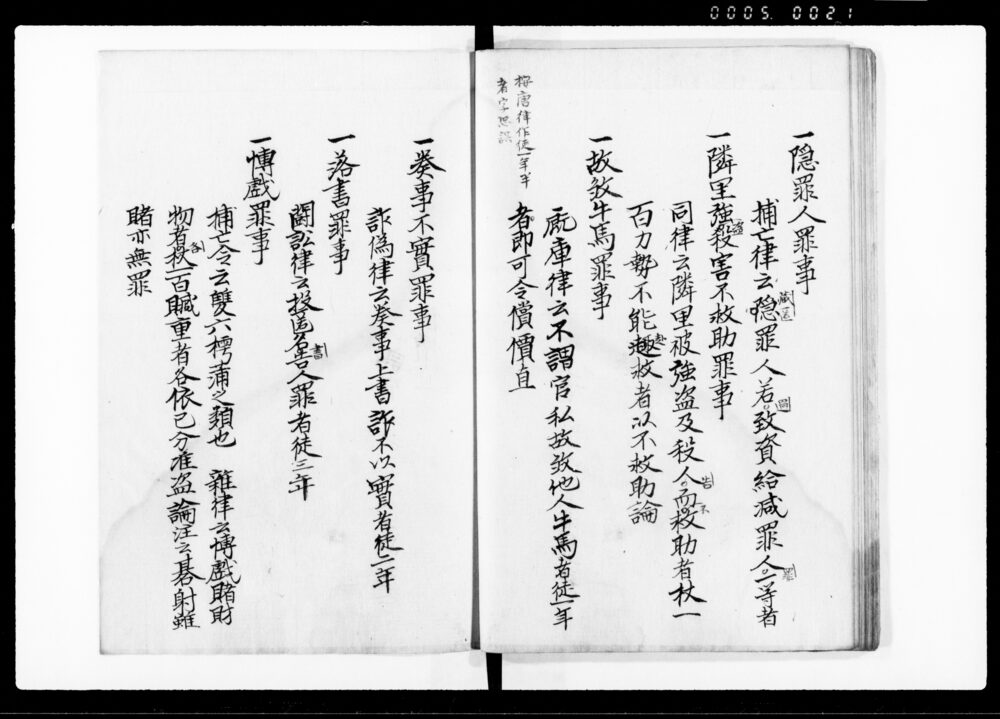 0005. 0021
一隠罪人罪事
捕亡律云隠罪人若致資給減罪人一等者
藏匿
圖
罪
一隣里強殺害不救助罪事
盗
同律云隣里被強盗及殺人而救助者杖一
告
不
百力勢不能趣救者以不救助論
按唐律作徒一年半
者字恐誤
一故殺牛馬罪事
厩庫律云不謂官私故殺他人牛馬者徒一年
者即可令償價直
一奏事不實罪事
詐偽律云奏事上書詐不以實者徒二年
一落書罪事
闘訟律云投匿名人罪者徒三年
書
一博戯罪事
捕亡令云雙六樗蒲之類也 雜律云博戯賭財
物者杖一百贓重者各依已分准盗論注云碁射雖
各
賭亦無罪